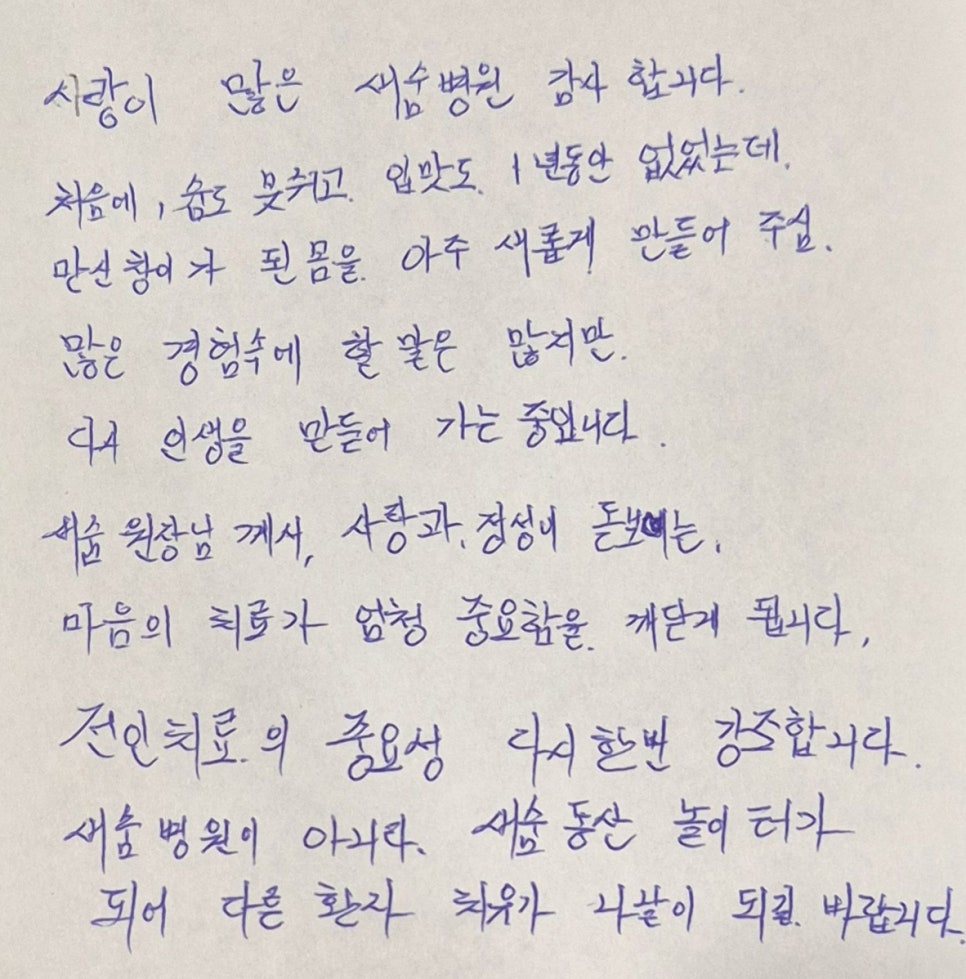 사랑이 많은 새숨병원 감사 합니다.
처음에, 숨도 못쉬고. 입맛도. 1년동안 없었는데.
만신창이가 된 몸을. 아주 새롭게 만들어 주심.
많은 경험속에 할 말은 많지만.
다시 인생을 만들어 가는 중입니다.
새숨 원장님 께서, 사랑과. 정성이 돋보이는,
마음의 치료가 엄청 중요함을. 깨닫게 됩니다,
전인치료.의 중요성 다시한번 강조합니다.
새숨병원이 아니라. 새숨동산 놀이터가
되어 다른 환자 치유가 나날이 되길. 바랍니다.